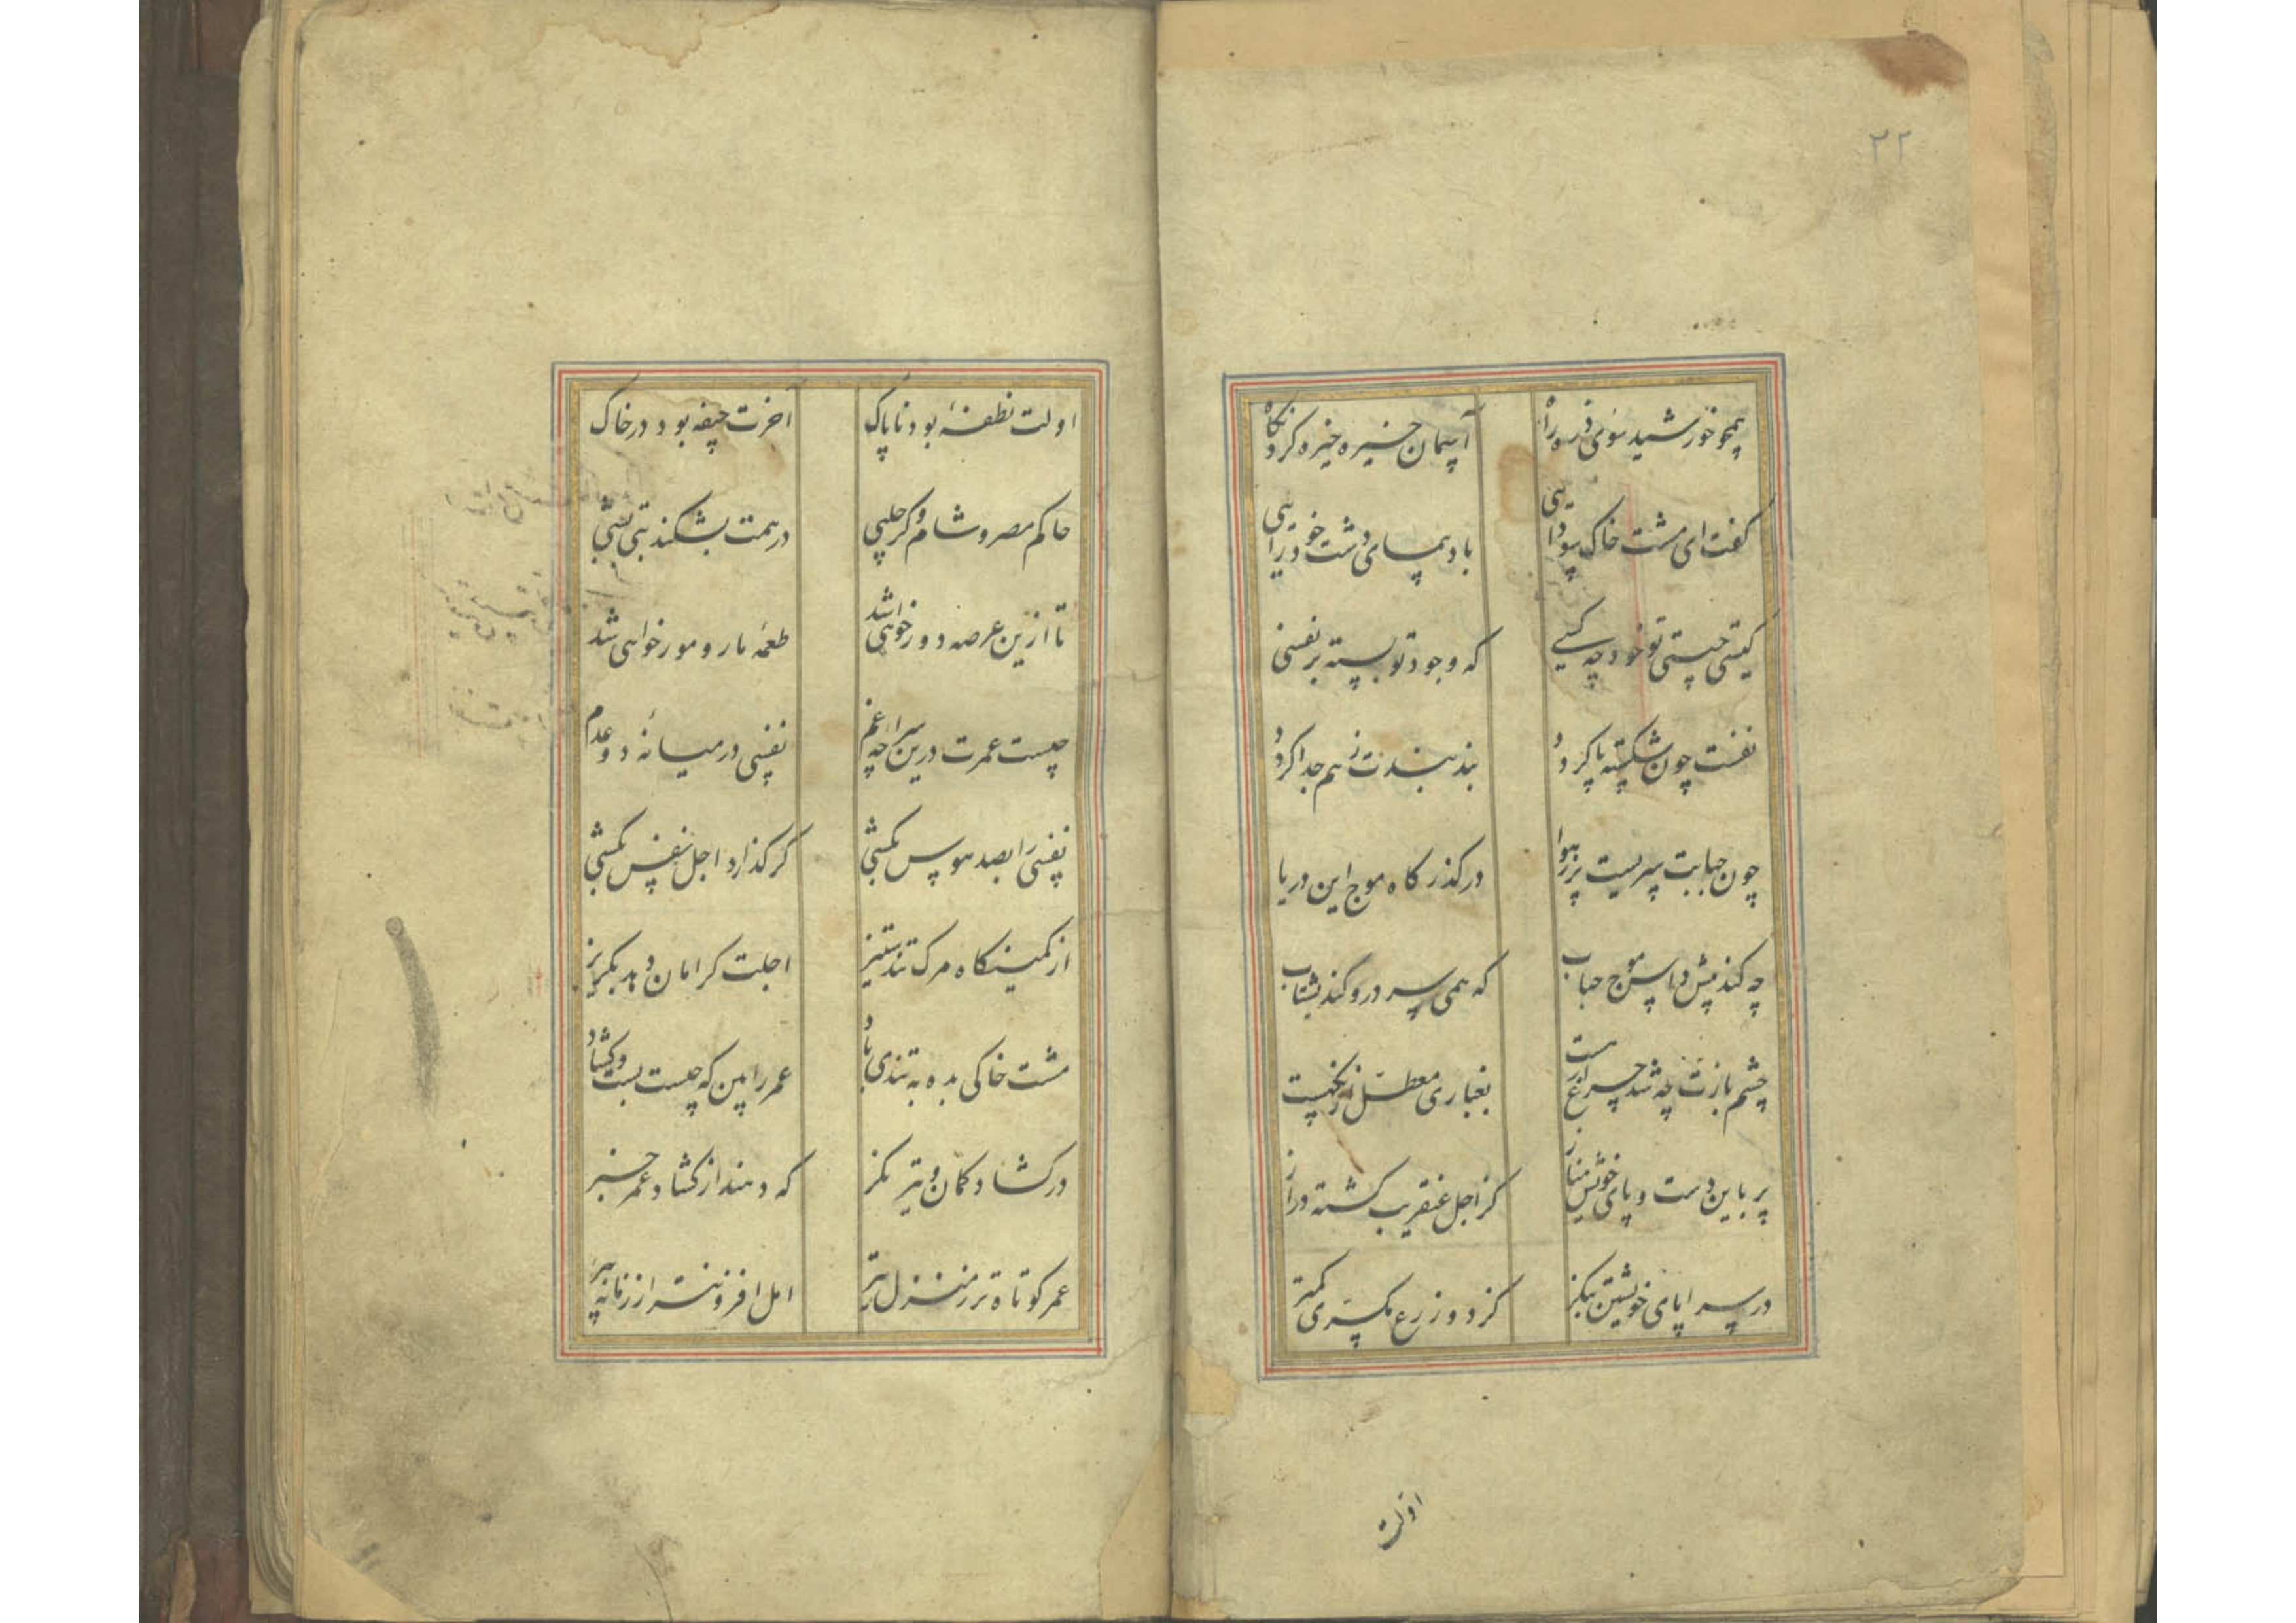 ۳۲
همچو خورشید سوی ذره ز راه
آسمان خیره خیره کرد نگاه
کفت ای مشت خاک سودایی
بادپیمای دشت خودرایی
کیستی چیستی تو خود چه کسی
که وجود تو بسته بر نفسی
نفست چون شکسته پا کردد
بند بندت ز هم جدا کردد
چون حبابت سریست پر ز هوا
در کذرکاه موج این دریا
چه کند پیش و اپس موج حباب
که همی سر درو کند بشتاب
چشم بازت چه شد چراغ
بغباری معطل از نکهیست
بر باین دست و پای خویش مناز
کز اجل عنقریب کشته دراز
در سراپای خویشتن بنکر
کز دو زرع مکسری کمتر
اولت
اولت نطفهٔ بود ناپاک
اخرت جیفه بود در خاک
حاکم مصر و شام و کر حلبی
درهمت بشکند تبی بشبی
تا ازین عرصه دور خواهی شد
طعمهٔ مار و مور خواهی شد
چیست عمرت درین سراچه غم
نفسی در میانهٔ دو عدم
نفسی را بصد هوس بکشی
کر کذارد اجل نفس بکشی
از کمینکاه مرک تند ستیز
اجلت کر امان دهد بکریز
مشت خاکی بده به تندی باد
عمر را بین که چیست بست و کشاد
در کشاد کمان و تیر نکر
که دهند از کشاد عمر خبر
عمر کوتاه تر ز منزل تیر
امل افزونتر از زمانه پیر